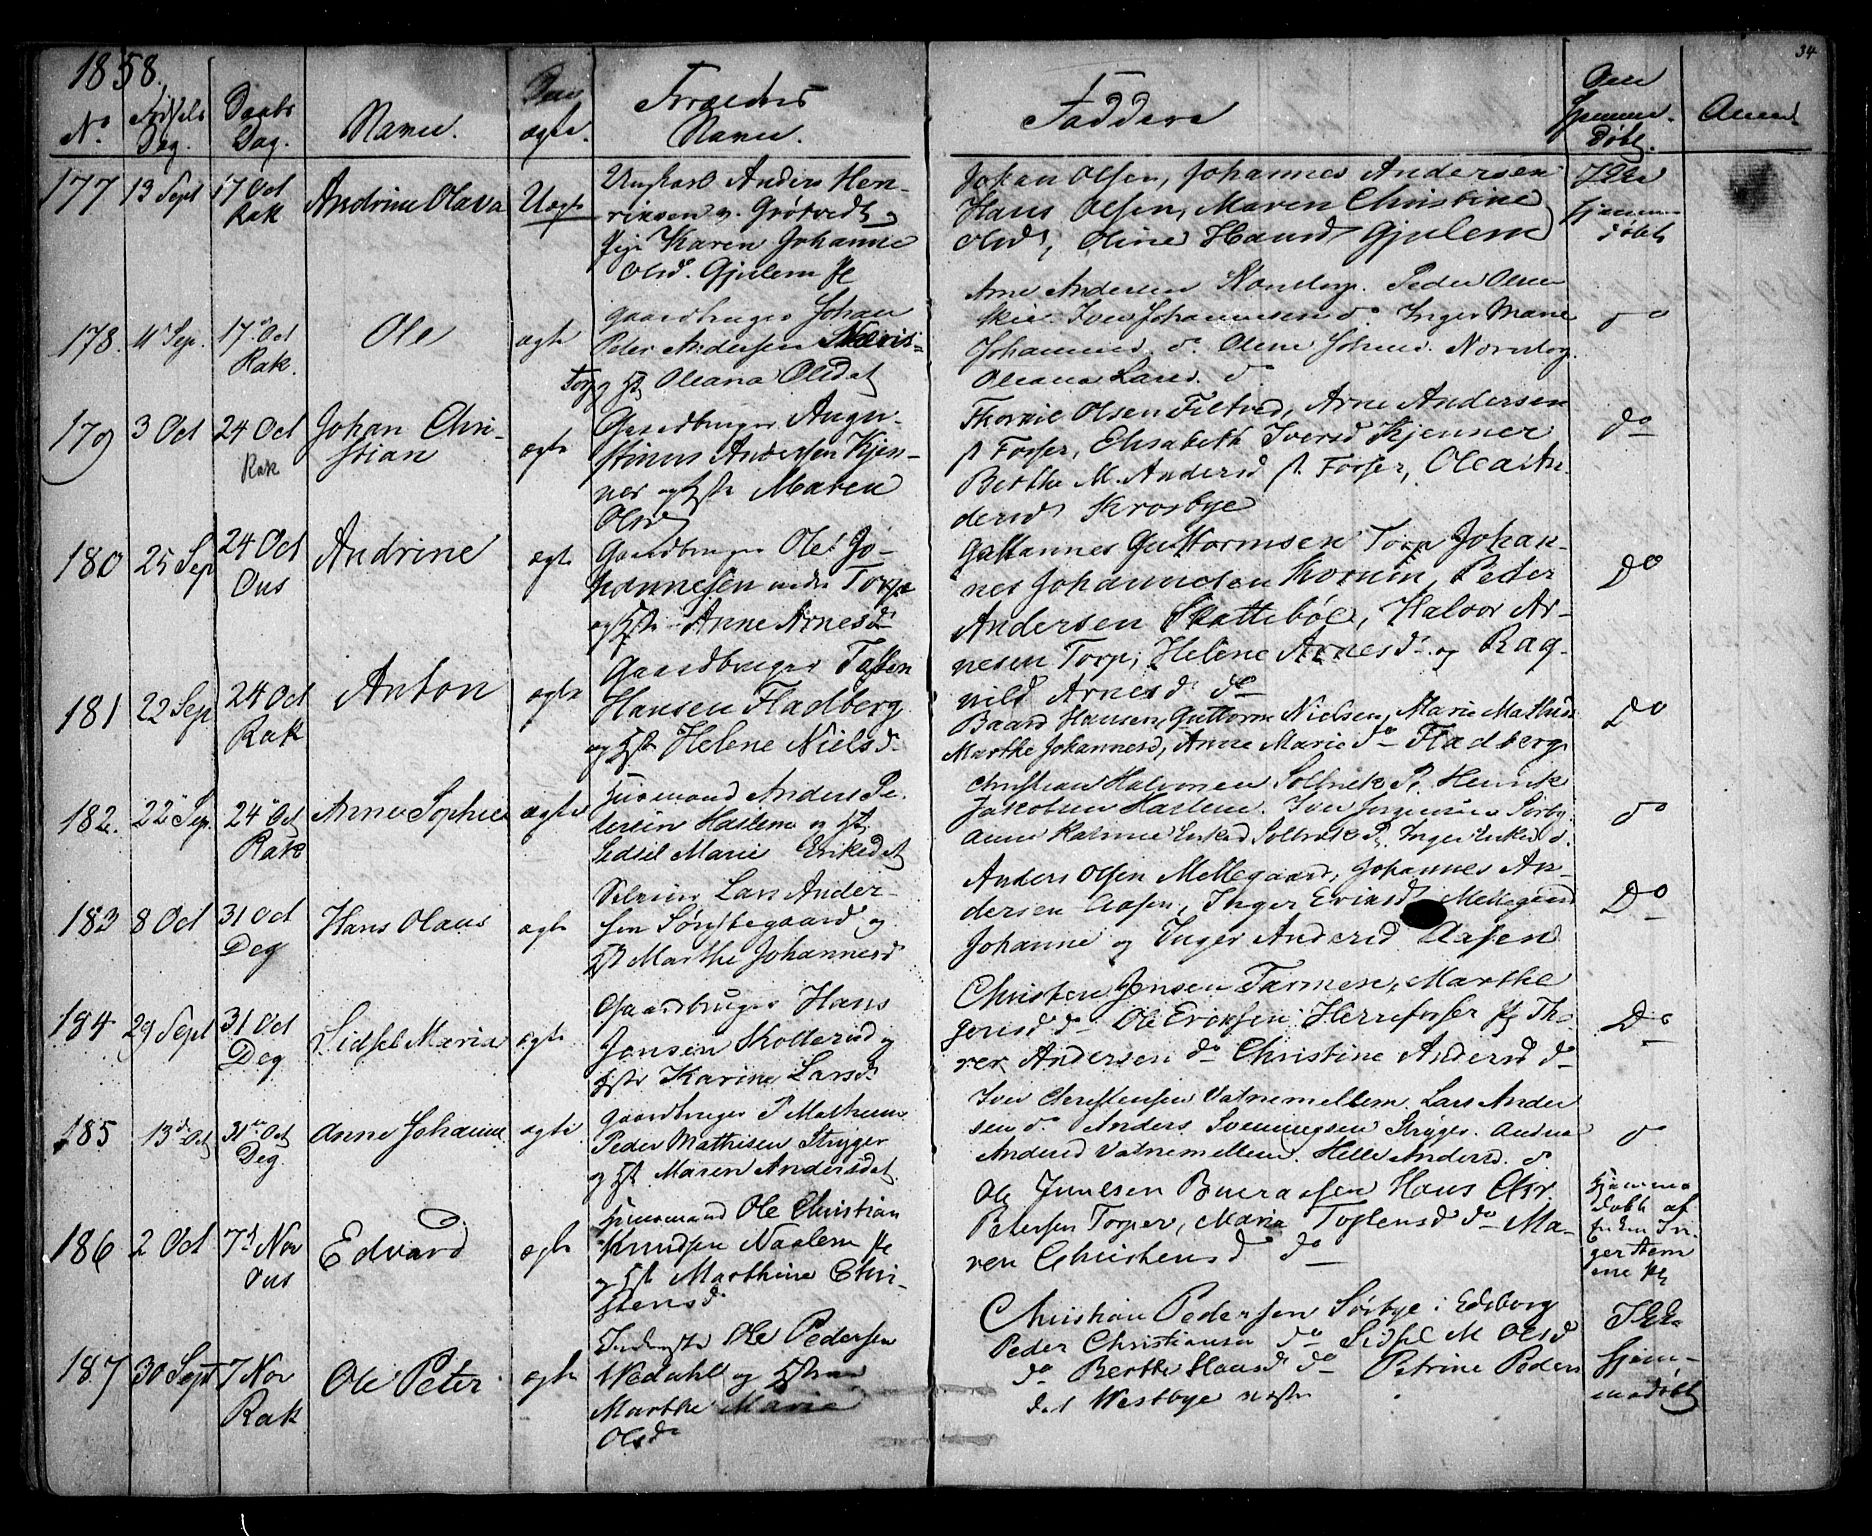 34
1858.
No. Fødsels Dag. Daabs Dag. Navne. ægte. Forældres Navne. Faddere Om Hjemme- døbt. Anm.
177 13 Sept 17 Oct Rak Andrine Olava Uægte
Ungkarl Anders Hen-
riksen v. Grøtvedt og
Pige Karen Johanne
Olsd. Gjulem
Johan Olsen, Johannes Andersen
Hans Olsen, Maren Christine
Olsd, Oline Hansd Gjulem
Ikke
hjemme-
døbt
178. 11 Sep. 17d Oct Rak. Ole ægte
Gaardbruger Johan
Peter Andersen
Torp og Hst Oleana Olsdat
Arne Andersen Peder Olsen
Iver Johannesen do. Inger Marie
Johannesd. do. Olene Johnsd.
Oleana Larsd. do
do
179 3 Oct 24 Oct Rak Johan Chri-
stian ægte
Gaardbruger Augu-
stinus Andersen Kjen-
ner og Hst Maren
Olsd
Thorvil Olsen Filtved, Arne Andersen
p. Fosser, Elisabeth Iversd Kjenner
Berthe M. Andersd p. Fosser, Olea An-
dersd Krosbye
do
180 25 Sep 24 Oct Ous Andrine ægte
Gaardbruger Ole Jo-
hannesen nedre Torp
og Hst Anne Arnesd
Guttormsen Torp Johan-
nes Johannesen Peder
Andersen Skattebøl, Halvor Ar-
nesen Torp, Helene Arnesd og Rag-
nild Arnesd do
Do
181 22 Sep 24 Oct Rak Anton ægte
Gaardbruger
Hansen Fladberg
og Hst Helene Nielsd
Baard Hansen, Guttorm Nielsen, Marie Mathisd
Marthe Johannesd, Anne Marie do Fladberg
Do
182. 22 Sep. 24 Oct Rak Anne Sophie ægte
Huusmand Anders Pe-
dersen Haslem og Hst
Sidsel Marie Eriksdat
Christian Halvorsen Solbræk P, Henrik
Jakobsen Haslem. Iver Jørgensen Sørby
Anne Katrine Eriksd Solbræk P. Inger Eriksd do.
do
183 8 Oct 31 Oct Deg Hans Olaus ægte
Selveier Lars Ander-
sen Søndbegaard og
Hst Marthe Johannesd
Anders Olsen Mellegaard, Johannes An-
dersen Aasen, Inger Eriksd Mellegaard
Johanne og Inger Andersd Aasen
Do
184 29 Sept 31 Oct Deg Sidsel Maria ægte
Gaardbruger Hans
Jensen Skollerud og
Hst Karine Larsd
Christen Jensen Tarmen, Marthe
do Ole Eriksen Herrefosser Th-
rer Andersen do Christine Andersd do
Do
185 13d Oct 31te Oct Deg. Anne Johanne ægte
Gaardbruger P Mathisen
Peder Mathisen Stryger
og Hst Maren Andersdat
Iver Christensen Vatnemellem Lars Ander
sen do Anders Svenningsen Stryger.
Andersd Vatnemellem. Helle Andersd. do.
do
186 2 Oct 7d Nov Ous Edvard ægte
Huusmand Ole Christian
Knudsen Naalem
og Hst Marthine Chri-
stensd
Ole Juulsen Hans Chr.
Petersen Torper, Maria Torstensd do Ma-
ren Christensd do
Hjemme
døbt af
Enken In-
ger
187 30 Sept 7 Nov Rak Ole Peter ægte
Inderste Ole Pedersen
Wedahl og Hstru
Marthe Maria
Olsd
Christian Pedersen Sørbye i Edsberg
Peder Christiansen do Sidsel M Olsd
do Berthe Hansd do Petrine Peders
dat Westbye
Ikke
hjem-
medøbt